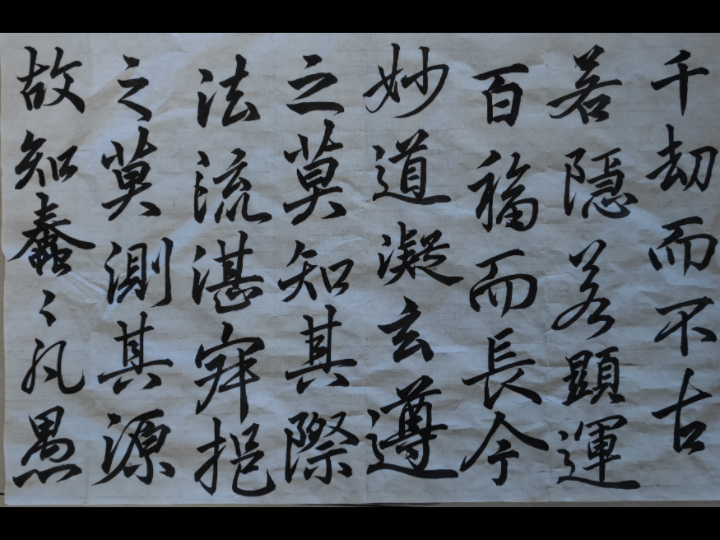 千劫而不古
若隱若顯運
百福而長今
妙道凝玄遵
之莫知其際
法流湛寂挹
之莫測其源
故知蠢々凡愚